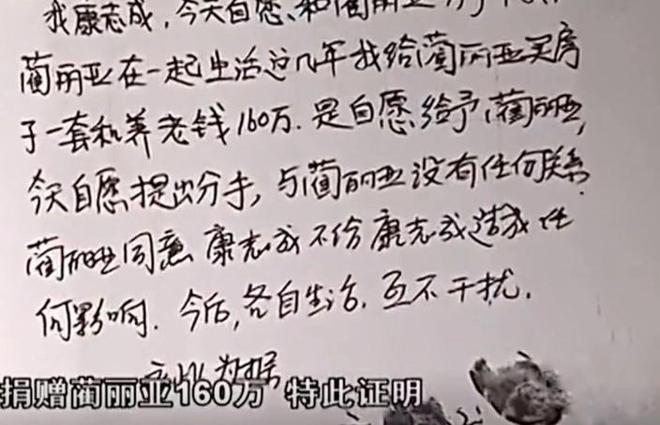 我康志成，今天自愿、和蔺丽亚分手
蔺丽亚在一起生活这几年我给蔺丽亚买房
子一套和养老钱160万.是自愿给予蔺丽亚,
今天自愿提出分手，与蔺丽亚没有任何关系.
蔺丽亚同意康志成不给康志成造成任
何影响.今后,各自生活.互不干扰.
立此为据
捐赠蔺丽亚160万 特此证明